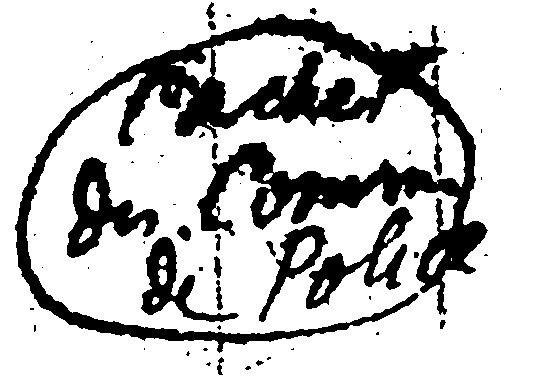 Cachet
du. Comm
de Police